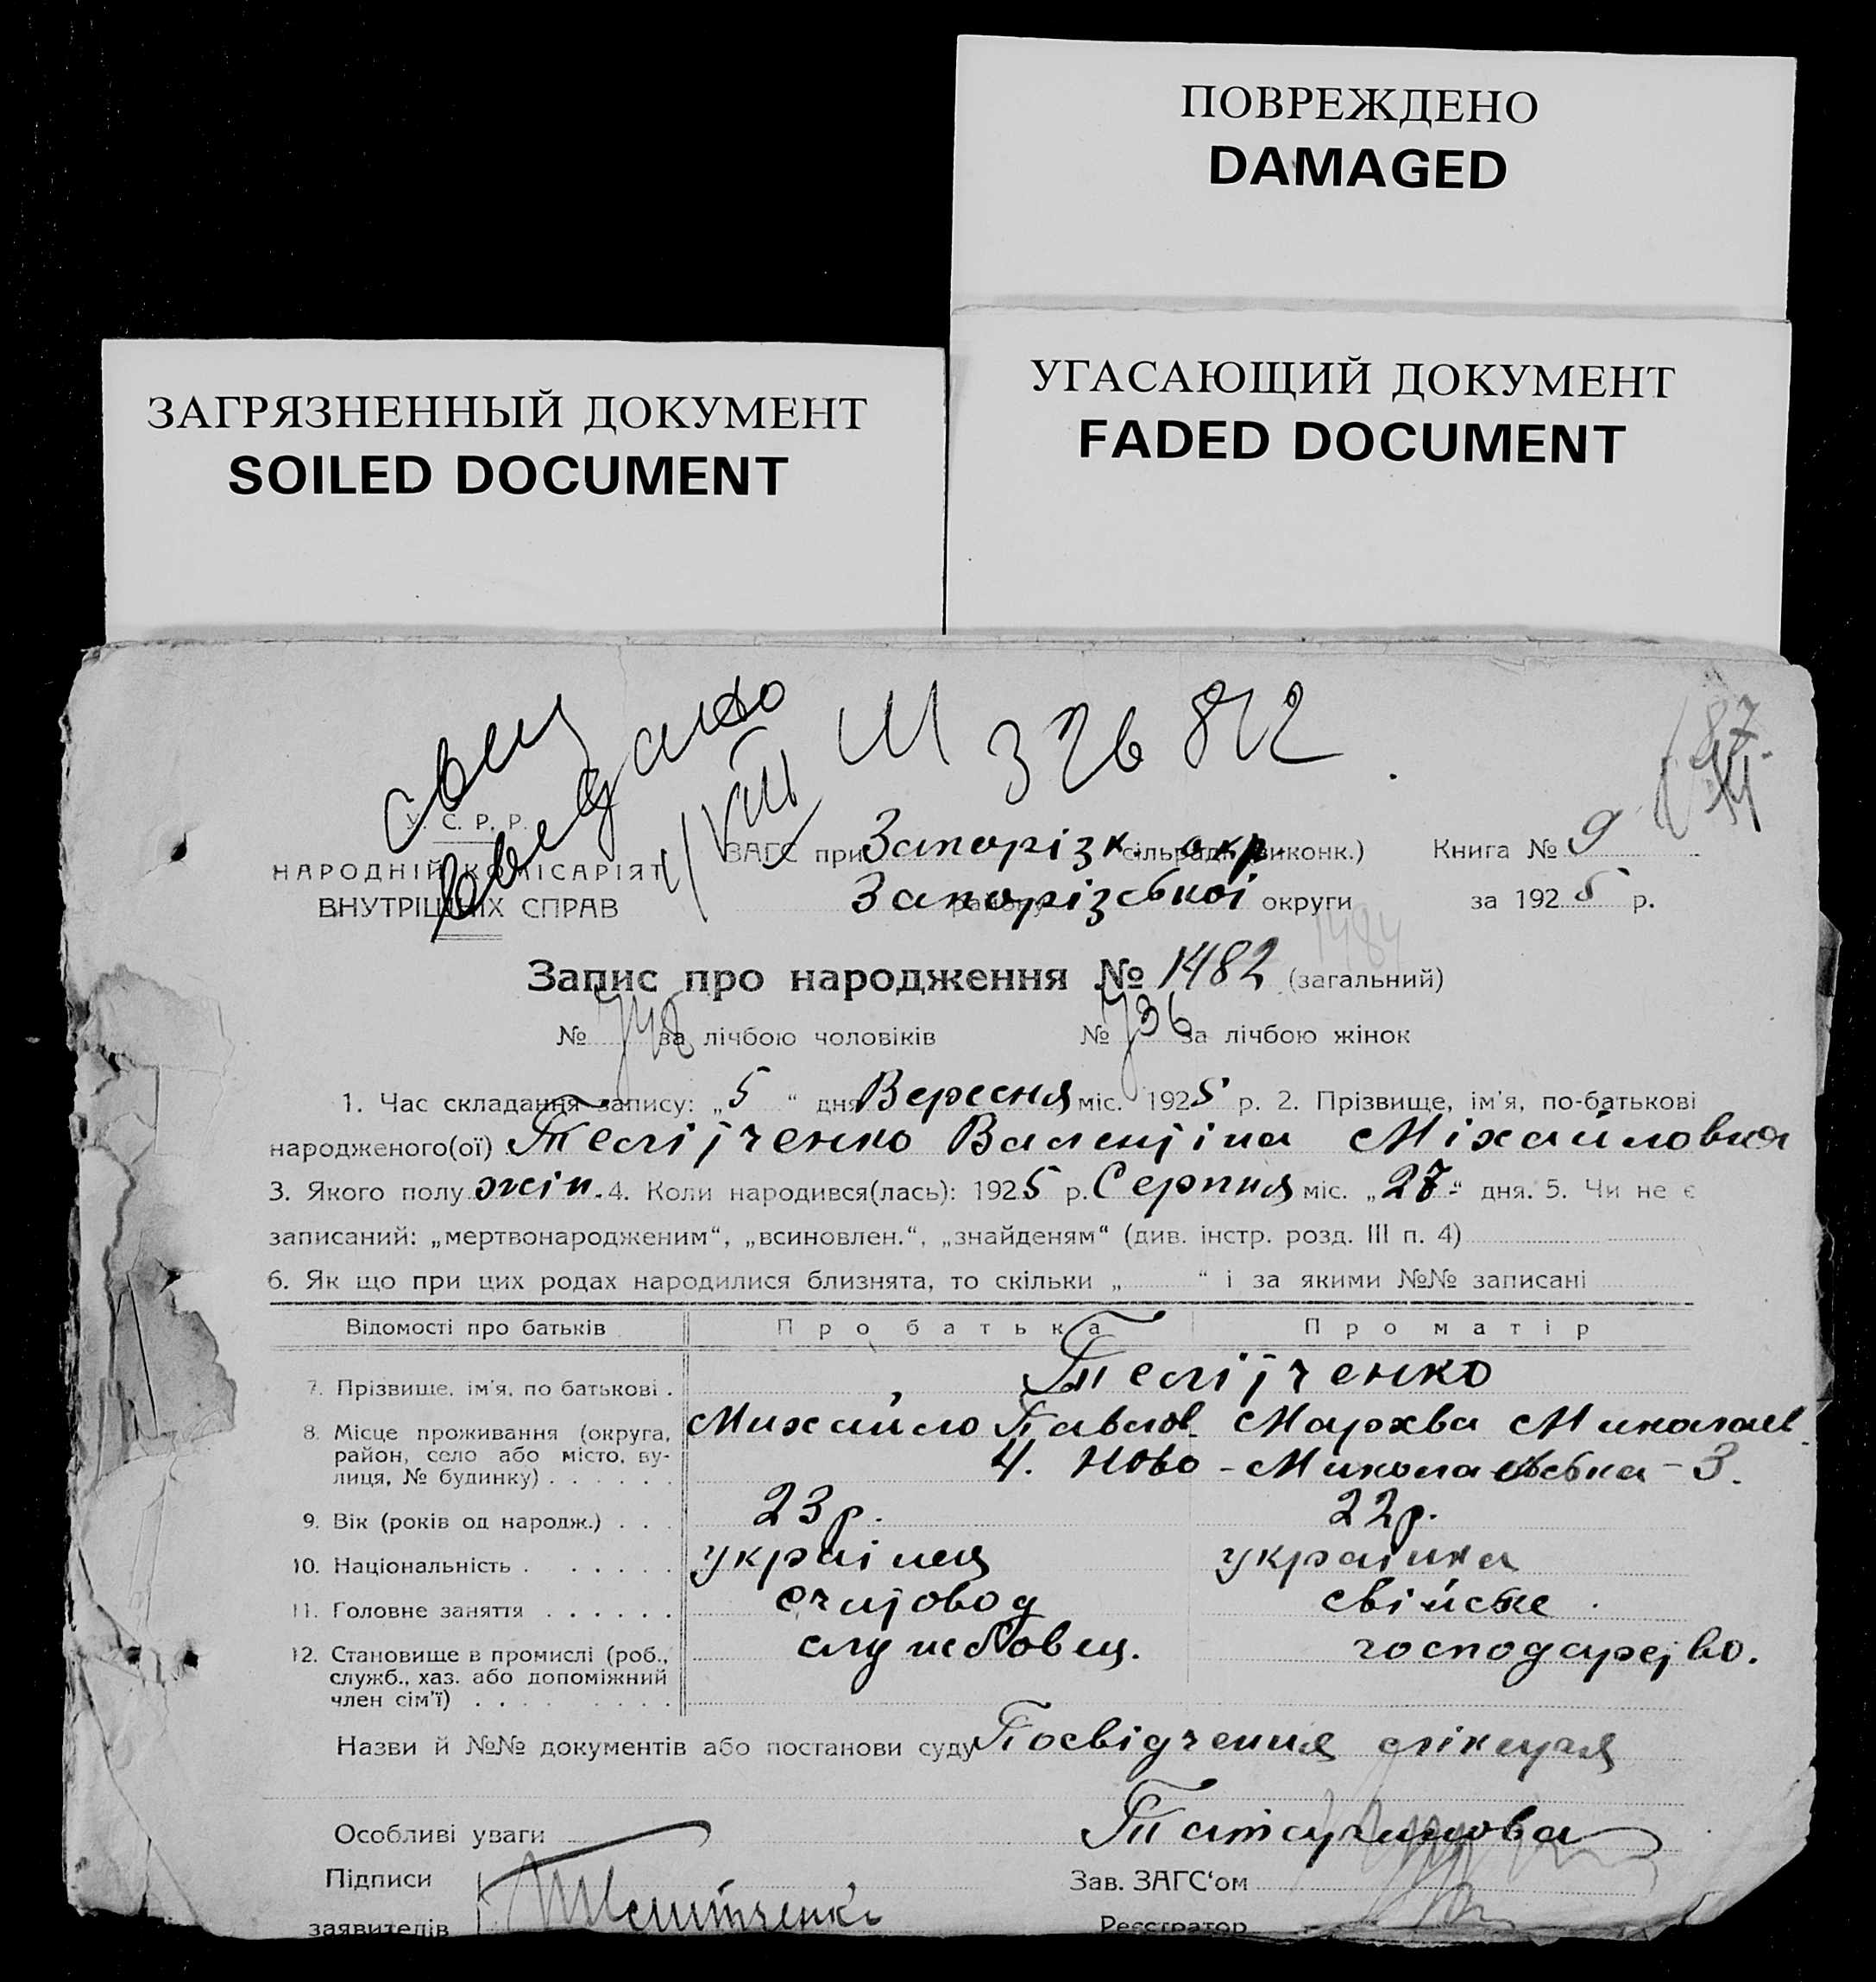 ПОВРЕЖДЕНО
DAMAGED
УГАСАЮЩИЙ ДОКУМЕНТ
FADED DOCUMENT
ЗАГРЯЗНЕННЫЙ ДОКУМЕНТ
SOILED DOCUMENT
Ш 326812
87
У. С. Р. Р.
НАРОДНІЙ КОМІСАРІЯТ
ВНУТРІШНІХ СПРАВ
VIII
ЗАГС при Запорізк. окр. сільради (виконк.) Книга № 9
району Запорізської округи за 1925 р.
1484
Запис про народження № 1482 (загальний)
№ 748 за лічбою чоловіків № 736 за лічбою жінок
1. Час складання запису: „5“ дня Вересня міс. 1925 р. 2. Прізвище, ім'я, по-батькові
народженого(ої) Телітченко Валентіна Міхайловна
3. Якого полу жін. 4. Коли народився(лась): 1925 р. Серпня міс. „27“ дня. 5. Чи не є
записаний: „мертвонародженим“, „всиновлен.“, „знайденям“ (див. інстр. розд. III п. 4)
6. Як що при цих родах народилися близнята, то скільки „ “ і за якими №№ записані
Відомості про батьків Про батька Про матір
7. Прізвище, ім'я, по батькові . Телітченко
8. Місце проживання (округа, Михайло Павлов. Мархва Миколаєв.
район, село або місто, ву-
лиця, № будинку) . . . . . . 4. Ново-Миколаевська-3.
9. Вік (років од народж.) . . . 23р. 22р.
10. Національність . . . . . . українец українка
11. Головне заняття . . . . . . считовод свійске
12. Становище в промислі (роб., службовец. господарство.
служб., хаз. або допоміжний
член сім'ї) . . . . . . . .
Назви й №№ документів або постанови суду Посвідчення лікаря
Особливі уваги
Підписи
Зав. ЗАГС'ом
заявителів Телитченко
Реєстратор